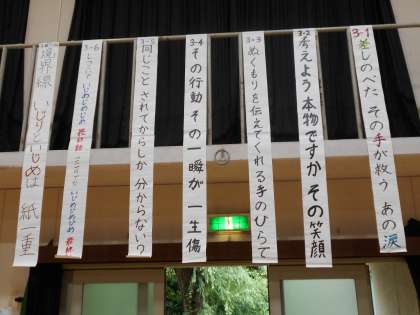 3-1 差しのべた その手が救う あの涙
3-2 考えよう 本物ですか その笑顔
3-3 ぬくもりを伝えてくれる手のひらで
3-4 その行動 その一瞬が 一生傷
3-5 同じこと されてからしか 分からない?
3-6
境界線 いじりといじめは 紙一重